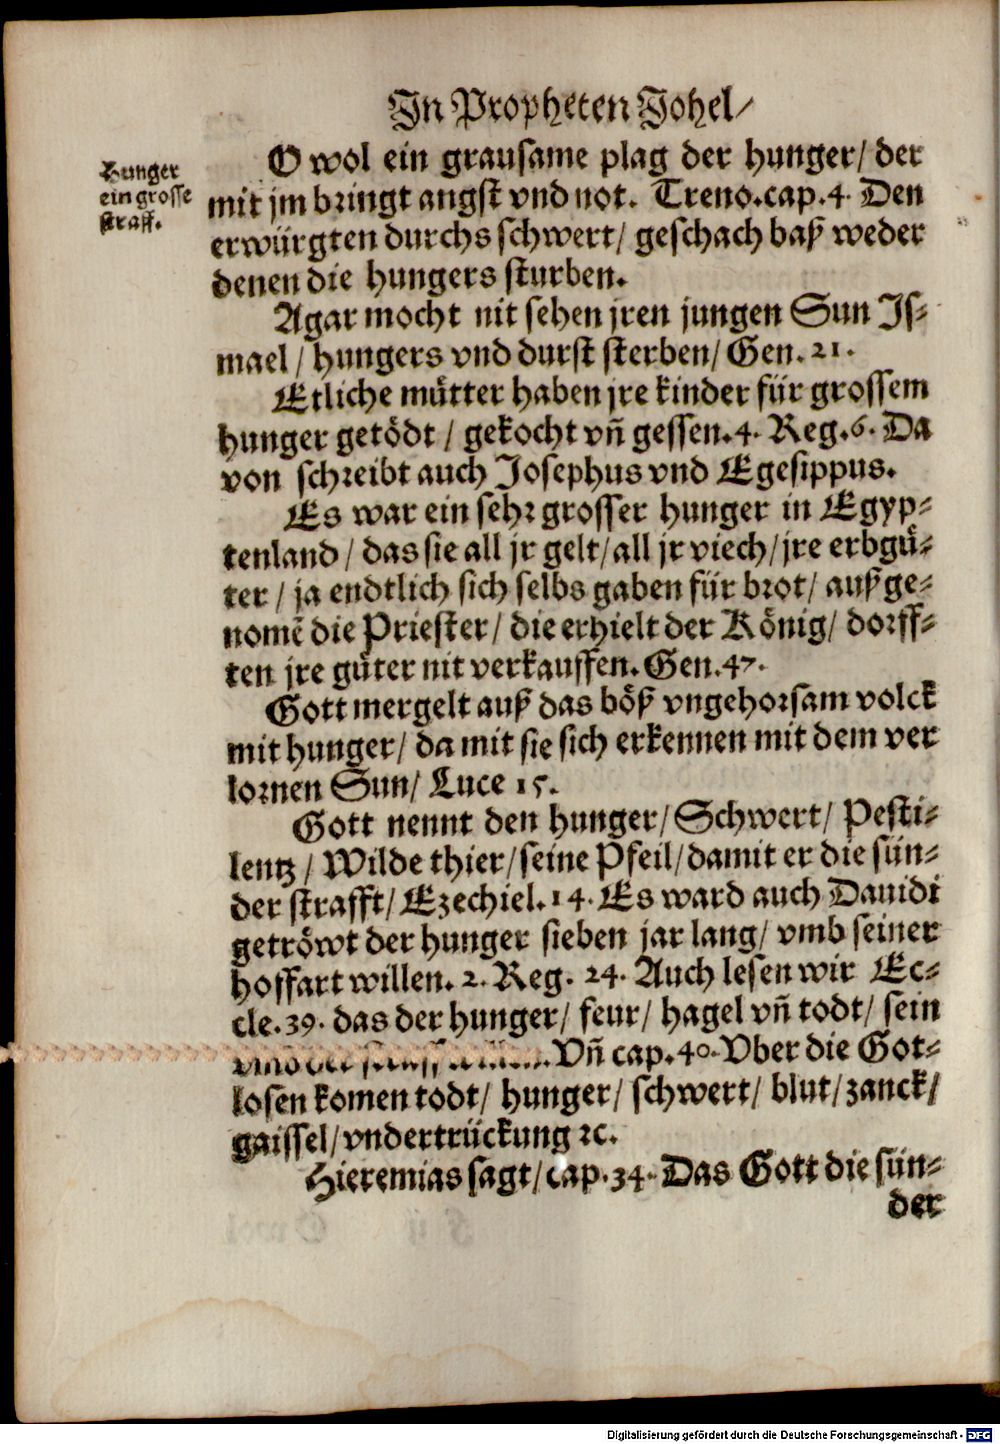 In Propheten Johel/
Hunger
ein grosse
straff.
O wol ein grausame plag der hunger/ der
mit jm bringt angst vnd not. Treno.cap.4. Den
erwürgten durchs schwert/ geschach baß weder
denen die hungers sturben.
Agar mocht nit sehen jren jungen Sun Is-
mael/ hungers vnd durst sterben/ Gen. 21.
Etliche mütter haben jre kinder für grossem
hunger getödt / gekocht vñ gessen. 4. Reg. 6. Da
von schreibt auch Josephus vnd Egesippus.
Es war ein sehr grosser hunger in Egyp-
tenland/ das sie all jr gelt/ all jr viech/ jre erbgü-
ter/ ja endtlich sich selbs gaben für brot/ außge-
nomẽ die Priester/ die erhielt der König/ dorff-
ten jre güter nit verkauffen. Gen. 47.
Gott mergelt auß das böß vngehorsam volck
mit hunger/ da mit sie sich erkennen mit dem ver
lornen Sun/ Luce 15.
Gott nennt den hunger/ Schwert/ Pesti-
lentz/ Wilde thier/ seine Pfeil/ damit er die sün-
der strafft/ Ezechiel. 14. Es ward auch Dauidi
getröwt der hunger sieben jar lang/ vmb seiner
hoffart willen. 2. Reg. 24. Auch lesen wir Ec-
cle. 39. das der hunger/ feur/ hagel vñ todt/ sein
Vñ cap. 40. Vber die Got-
losen komen todt/ hunger/ schwert/ blut/ zanck/
gaissel/ vndertrückung ꝛc.
Hieremias sagt/ cap. 34. Das Gott die sün-
der
Digitalisierung gefördert durch die Deutsche Forschungsgemeinschaft - DFG